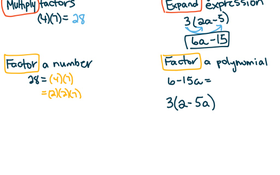 Multiply factors
(4)(7) = 28
Expand expression
3(2a-5)
6a-15
Factor a number
28 = (4)(7)
= (2)(2)(7)
Factor a polynomial
6-15a =
3(2-5a)